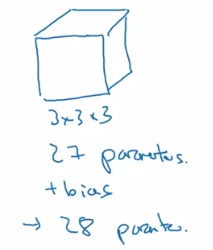 3x3x3
27 parameters.
+bias
→ 28 parameters.